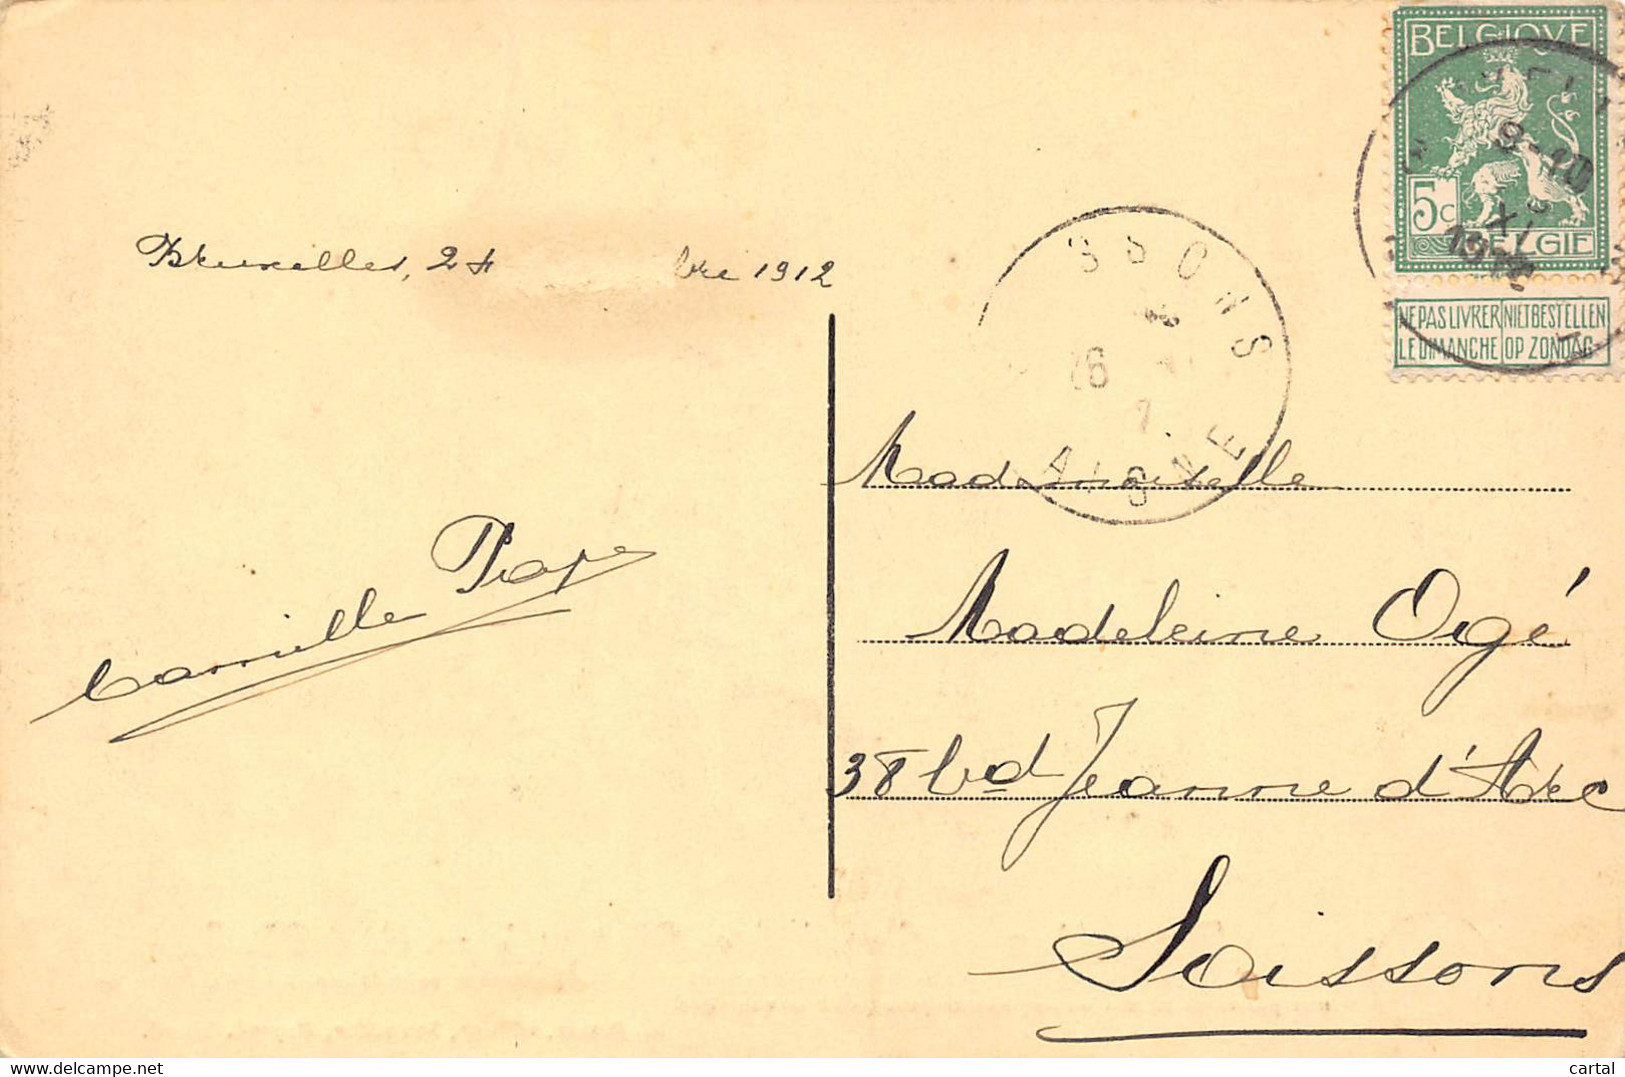 BELGIQUE
5c
BELGIE
NE PAS LIVRER NIET BESTELLEN
LE DIMANCHE OP ZONDAG
9-10
XI
Bruxelles, 24 bre 1912
26
AISNE
Mademoiselle
Camille Pape
Madeleine Ogé
38 bvd Jeanne d'Arc
Soissons
cartal